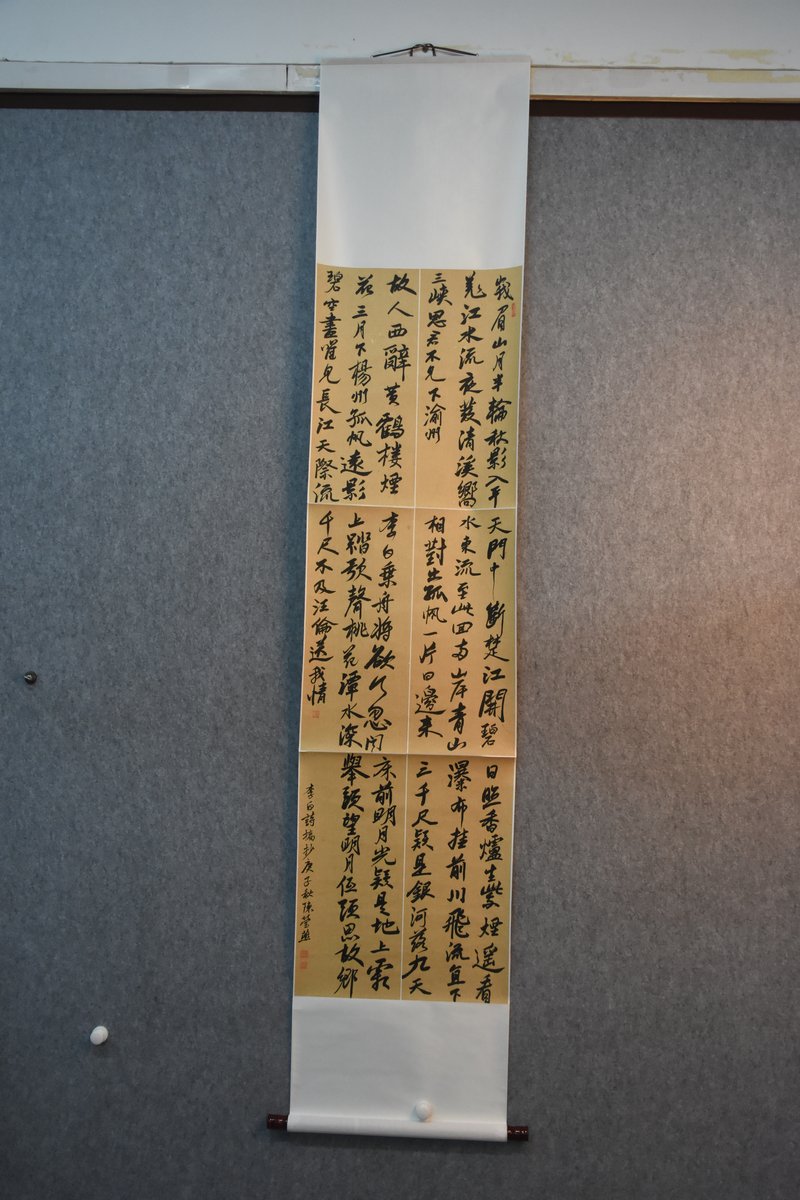 峩眉山月半輪秋影入平
羌江水流夜發清溪嚮
三峽思君不見下渝州
天門中斷楚江開碧
水東流至此回兩岸青山
相對出孤帆一片日邊來
日照香爐生紫煙遥看
瀑布挂前川飛流直下
三千尺疑是銀河落九天
故人西辭黄鶴楼煙
花三月下楊州孤帆遠影
碧空盡唯見長江天際流
李白乗舟將欲行忽聞
上踏歌聲桃花潭水深
千尺不及汪倫送我情
床前明月光疑是地上霜
舉頭望明月低頭思故鄉
李白詩摘抄庚子秋陳榮